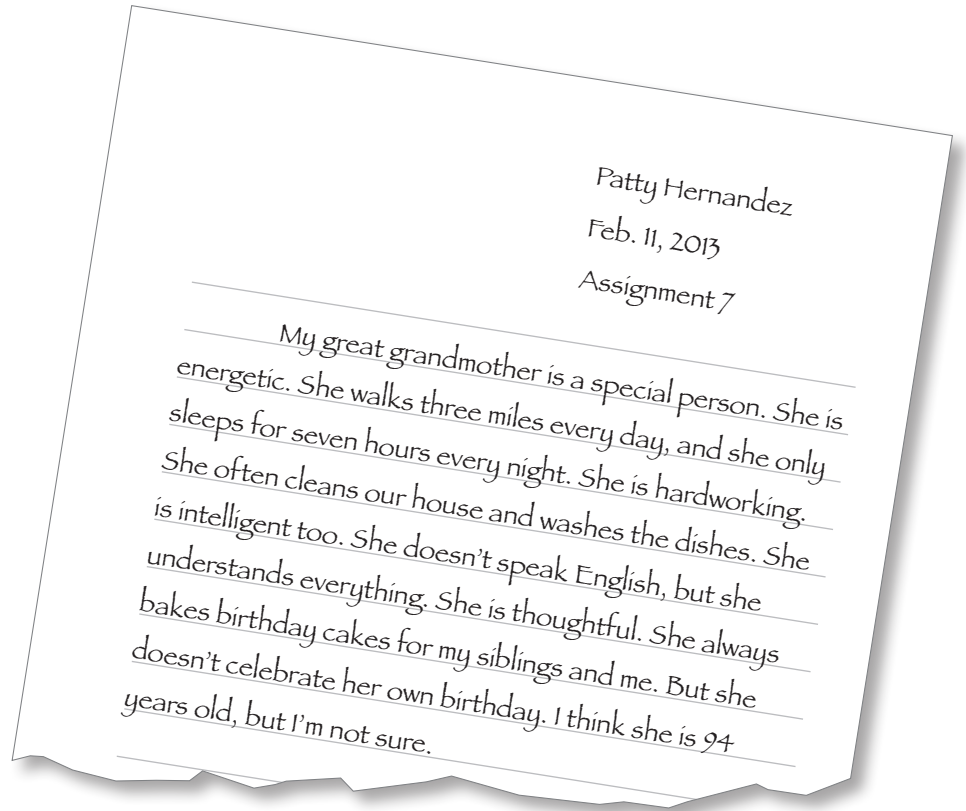 Patty Hernandez
Feb. 11, 2013
Assignment 7
My great grandmother is a special person. She is
energetic. She walks three miles every day, and she only
sleeps for seven hours every night. She is hardworking.
She often cleans our house and washes the dishes. She
is intelligent too. She doesn't speak English, but she
understands everything. She is thoughtful. She always
bakes birthday cakes for my siblings and me. But she
doesn't celebrate her own birthday. I think she is 94
years old, but I'm not sure.